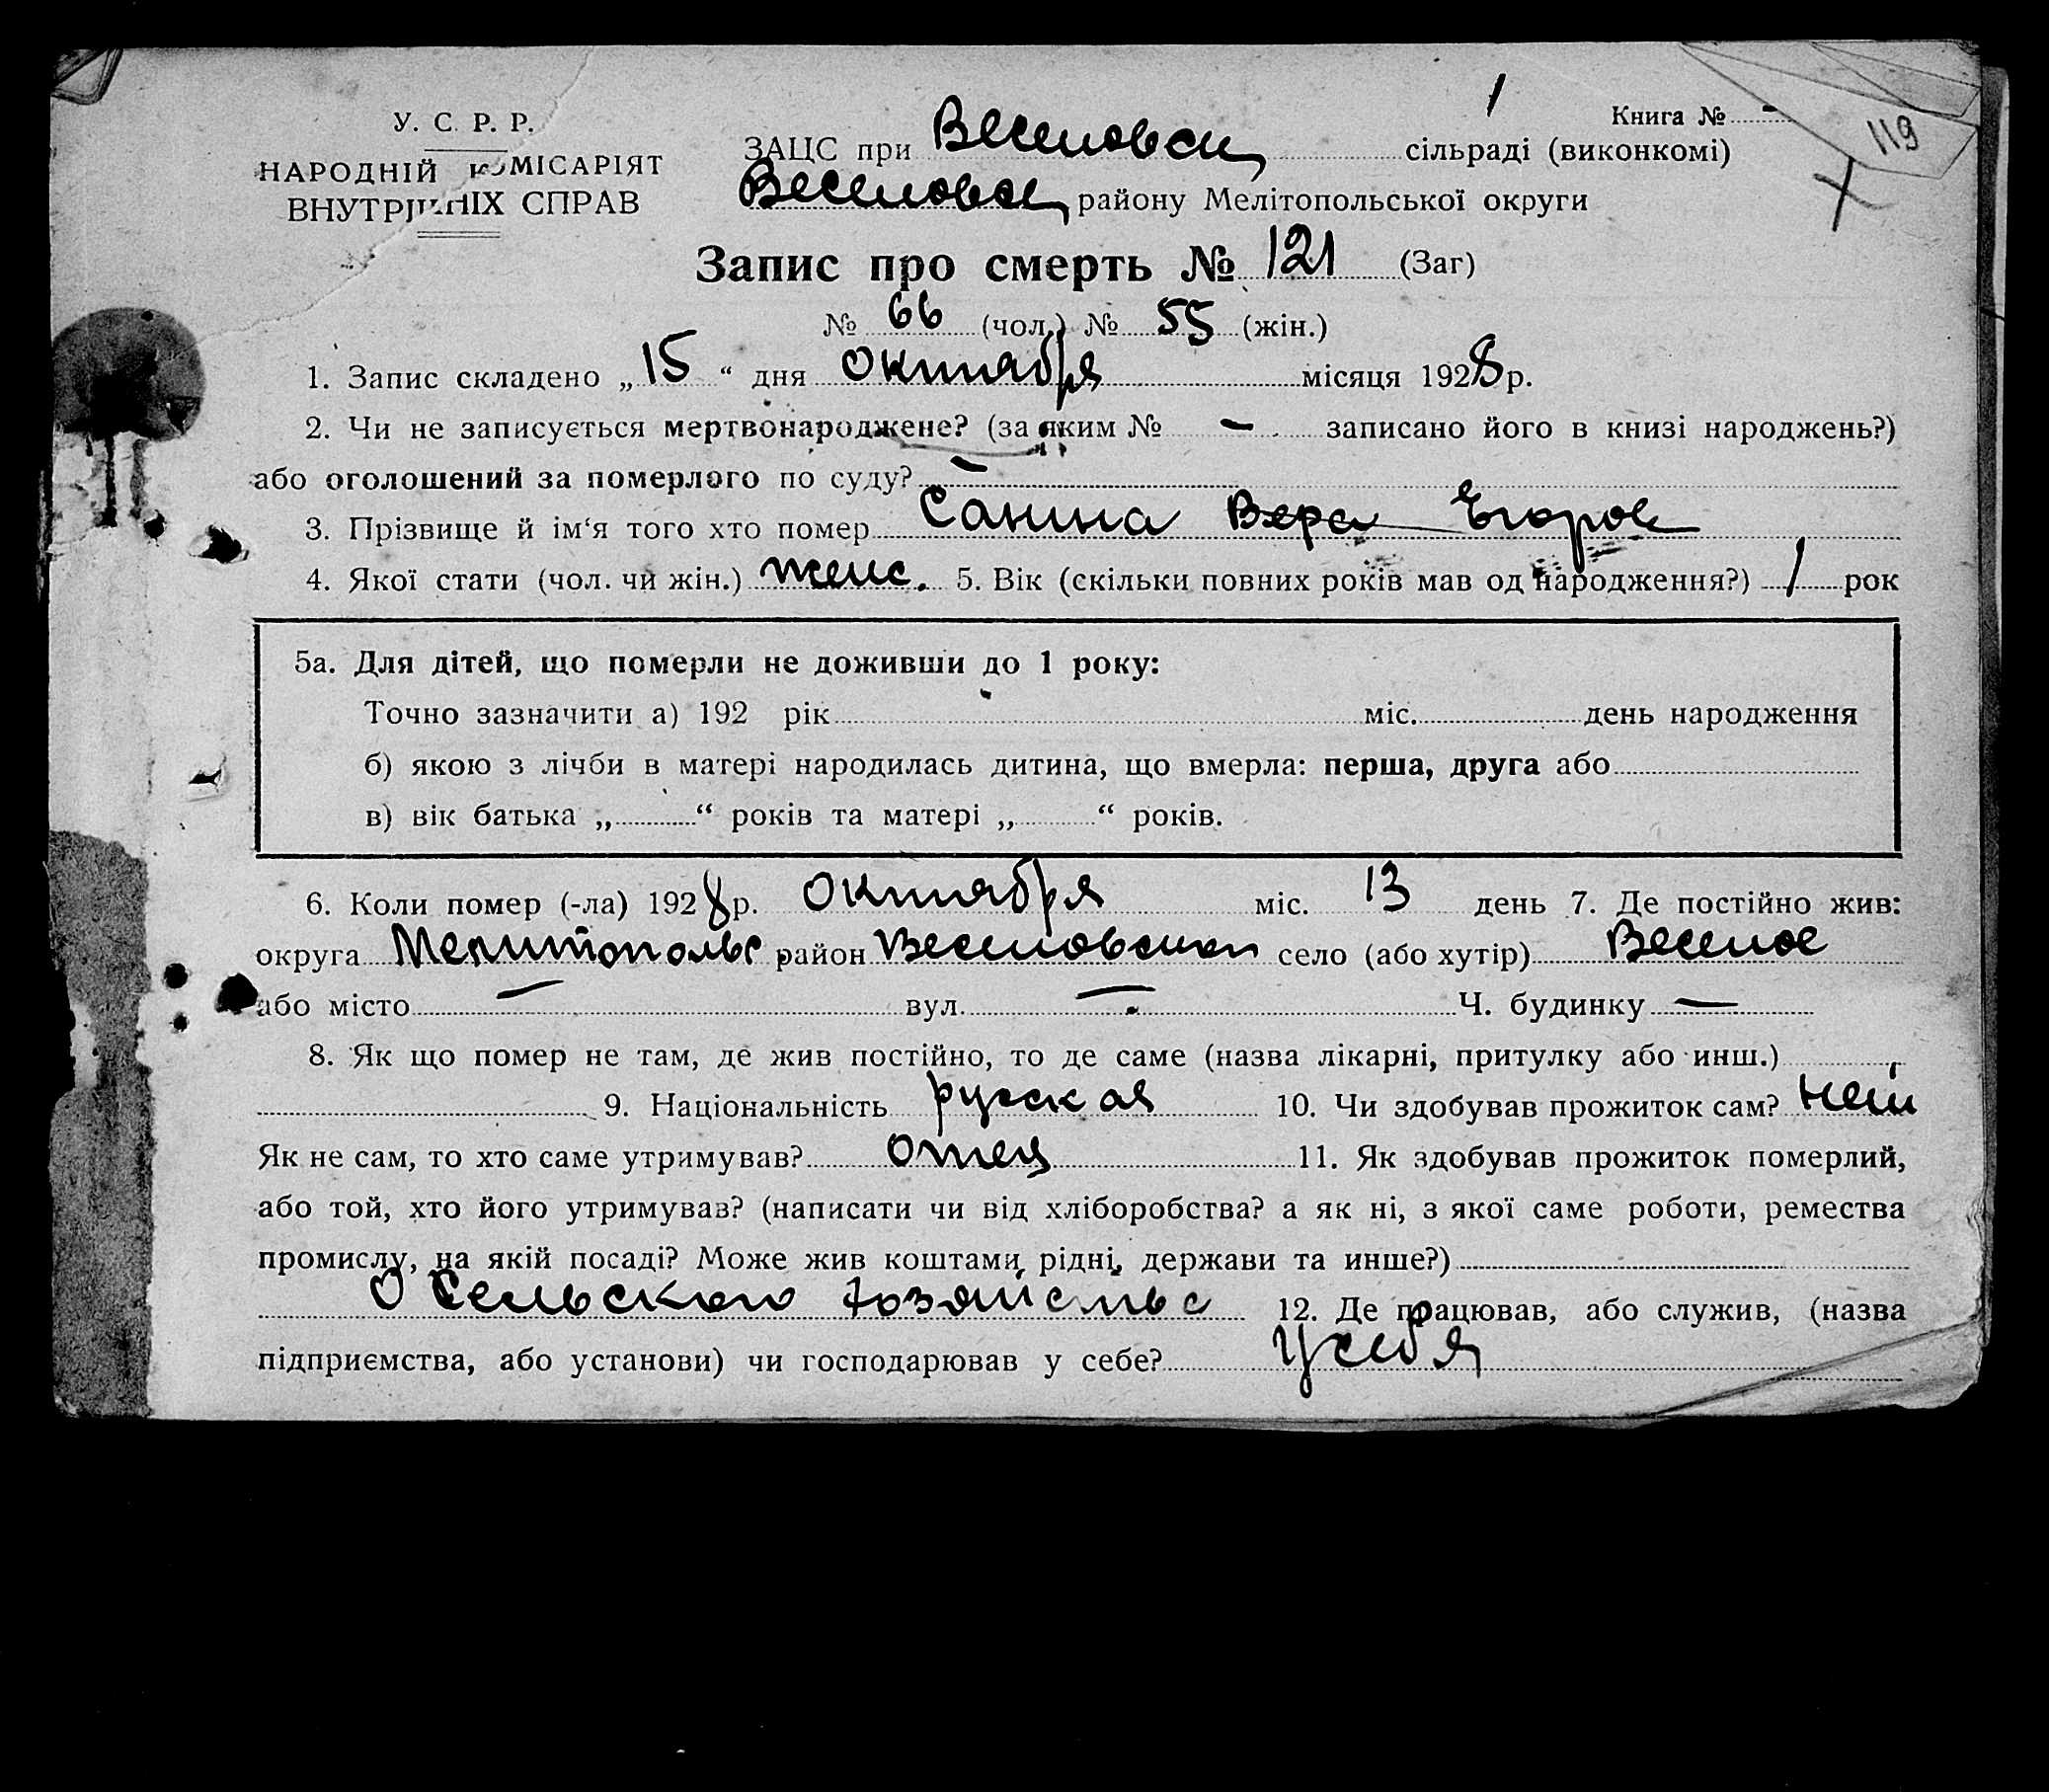 У. С. Р. Р.
НАРОДНІЙ КОМІСАРІЯТ
ВНУТРІШНІХ СПРАВ
1
Книга № -
119
ЗАЦС при Веселовск сільраді (виконкомі)
Веселовск району Мелітопольської округи
Запис про смерть № 121 (Заг)
№ 66 (чол.) № 55 (жін.)
1. Запис складено „15“ дня Октября місяця 1928 р.
2. Чи не записується мертвонароджене? (за яким № - записано його в книзі народжень?)
або оголошений за померлого по суду? -
3. Прізвище й ім‘я того хто помер Санина Вера Егоров
4. Якої стати (чол. чи жін.) женс. 5. Вік (скільки повних років мав од народження?) 1 рок
5а. Для дітей, що померли не доживши до 1 року:
Точно зазначити а) 192 рік міс. день народження
б) якою з лічби в матері народилась дитина, що вмерла: перша, друга або
в) вік батька „ “ років та матері „ “ років.
6. Коли помер (-ла) 1928 р. Октября міс. 13 день 7. Де постійно жив:
округа Мелитопольс район Веселовский село (або хутір) Веселое
або місто — вул. — Ч. будинку —
8. Як що помер не там, де жив постійно, то де саме (назва лікарні, притулку або инш.)
9. Національність русская 10. Чи здобував прожиток сам? нет
Як не сам, то хто саме утримував? отец 11. Як здобував прожиток померлий,
або той, хто його утримував? (написати чи від хліборобства? а як ні, з якої саме роботи, ремества
промислу, на якій посаді? Може жив коштами рідні, держави та инше?)
О Сельского хозяйства 12. Де працював, або служив, (назва
підприємства, або установи) чи господарював у себе? У себя